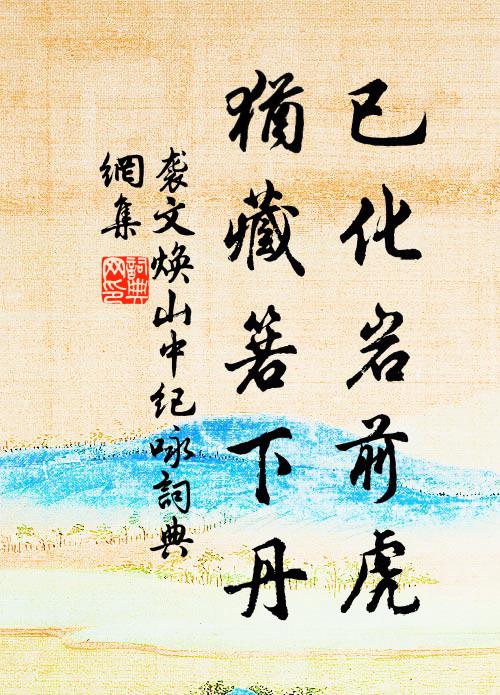 已化岩前虎
猶藏箬下丹
袭文焕山中纪咏詞典
網集
詞典網印